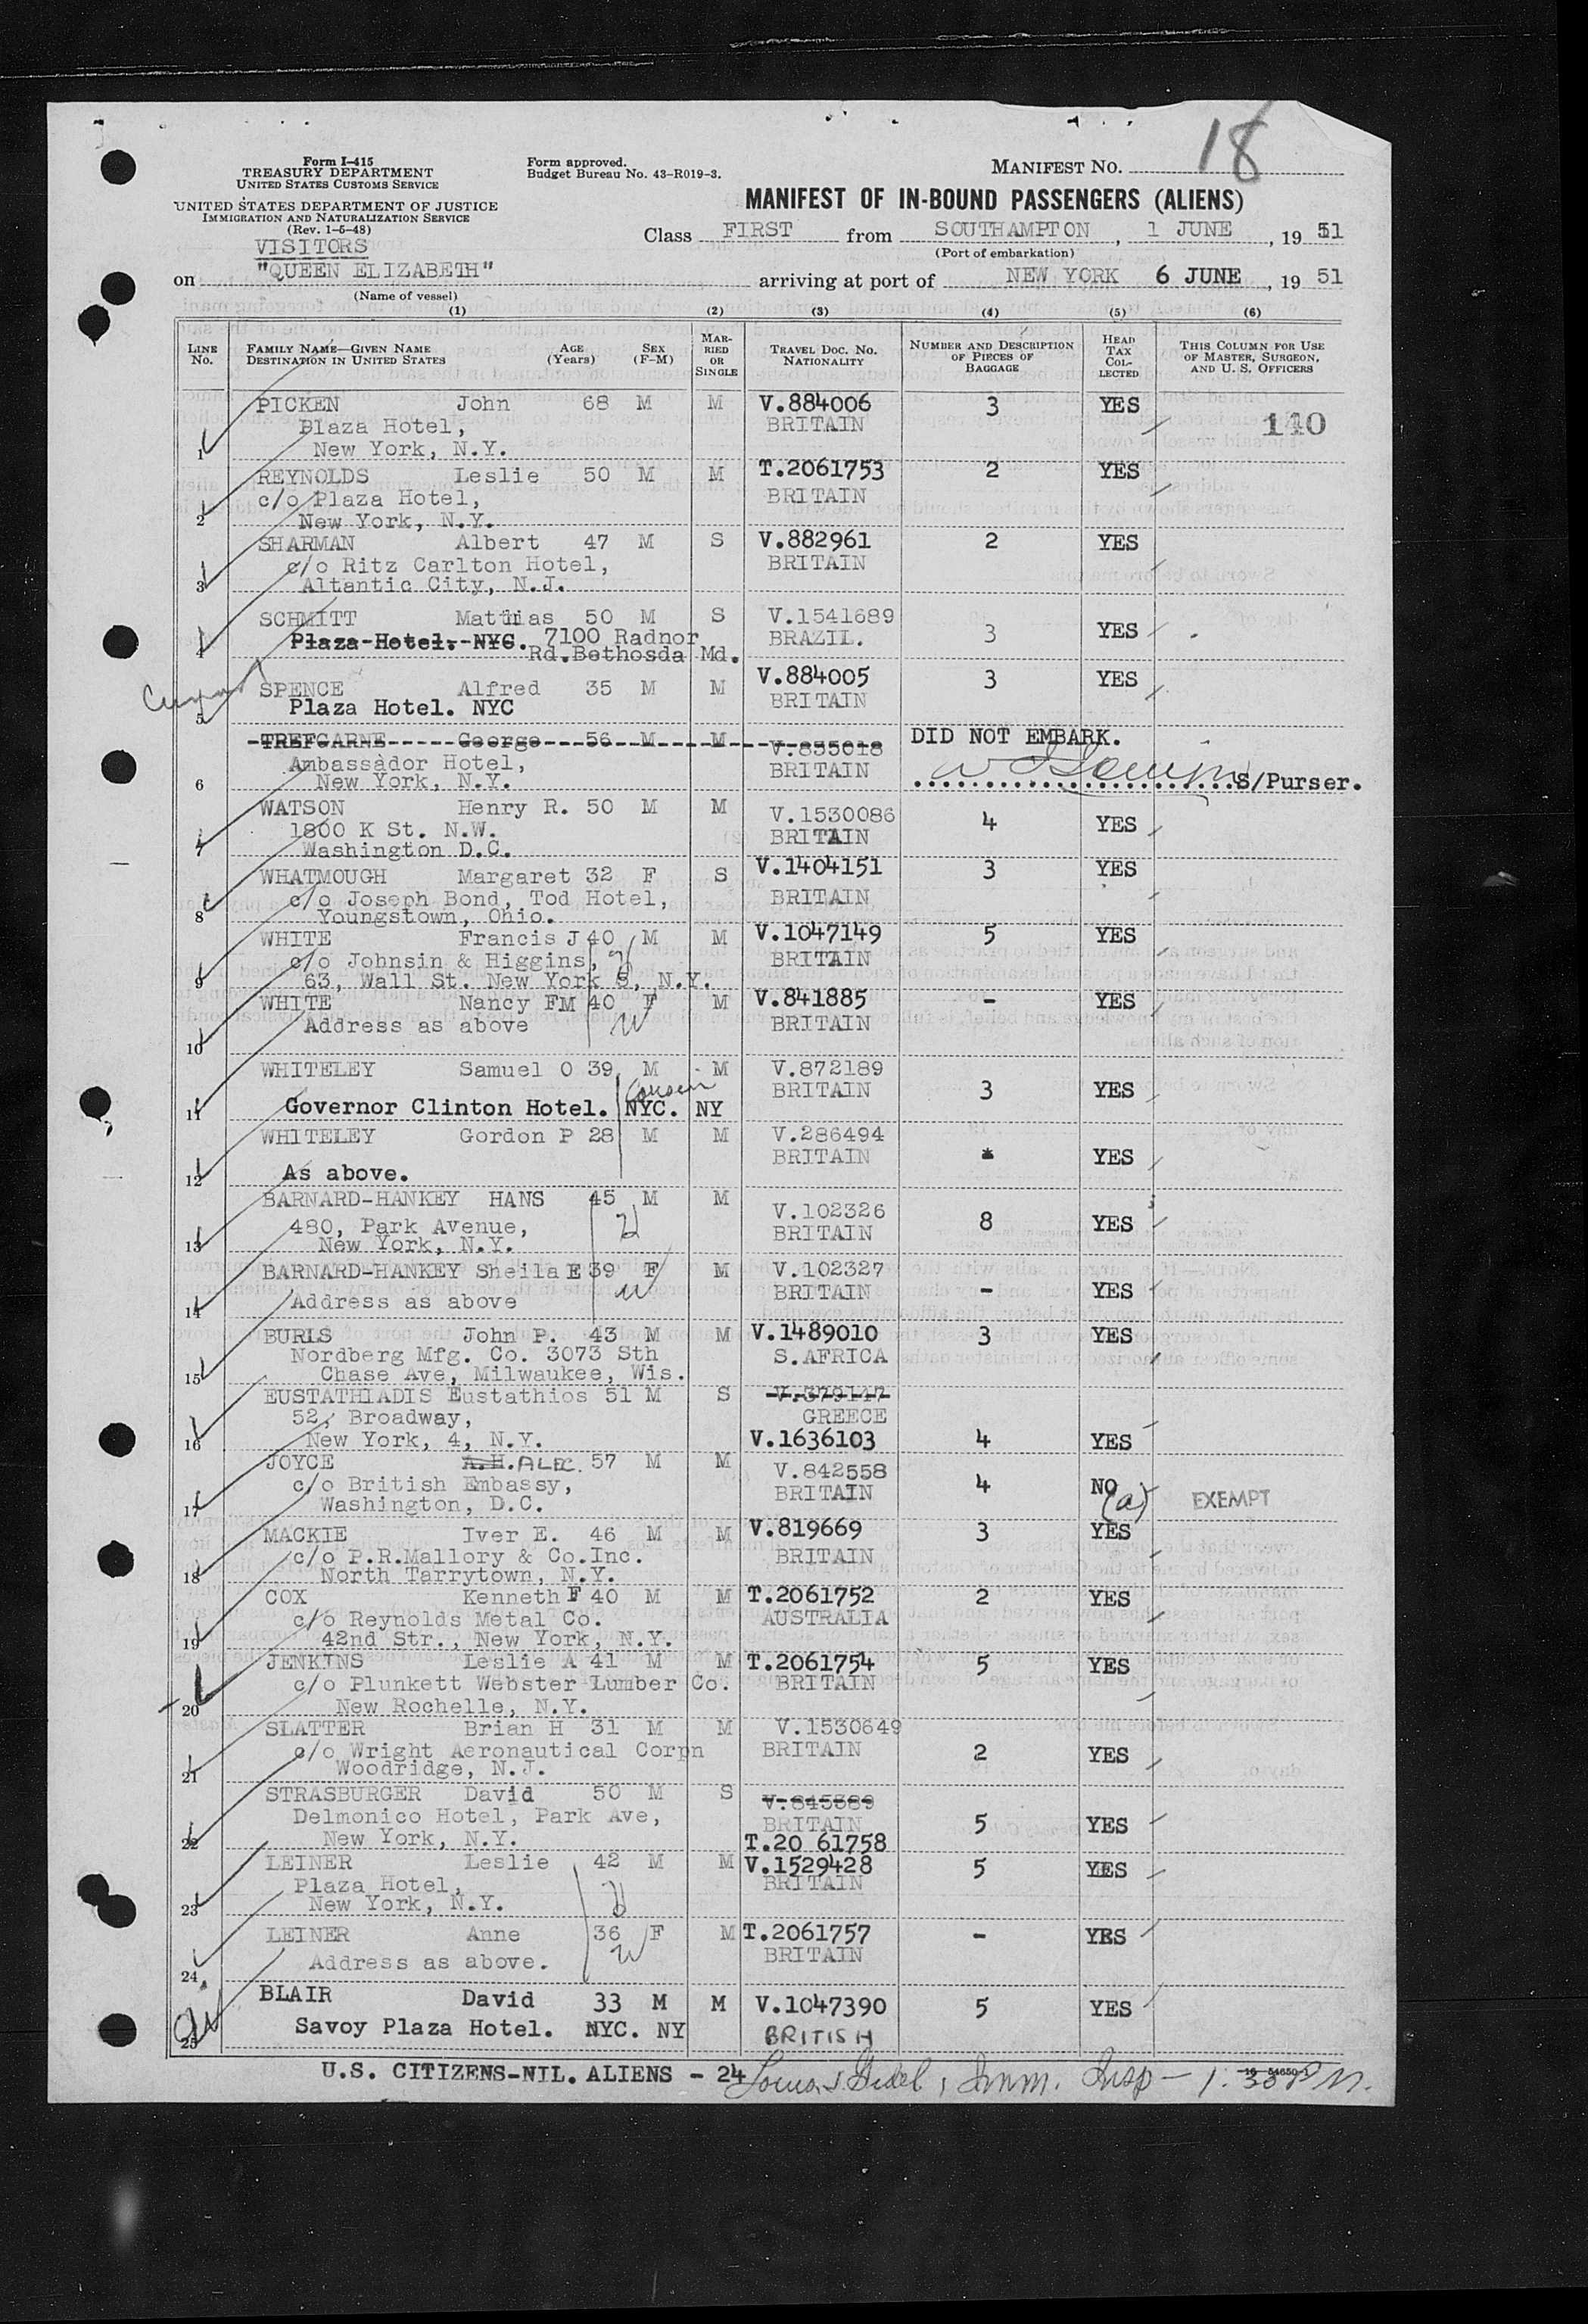 18
Form I-415
TREASURY DEPARTMENT
UNITED STATES CUSTOMS SERVICE
UNITED STATES DEPARTMENT OF JUSTICE
IMMIGRATION AND NATURALIZATION SERVICE
(Rev. 1-5-48)
VISITORS
Form approved.
Budget Bureau No. 43-R019-3.
MANIFEST NO.
MANIFEST OF IN-BOUND PASSENGERS (ALIENS)
Class FIRST from SOUTHAMPTON, 1 JUNE, 19 51
(Port of embarkation)
on "QUEEN ELIZABETH" arriving at port of NEW YORK 6 JUNE, 19 51
(Name of vessel)
(1) (2) (3) (4) (5) (6)
LINE No. FAMILY NAME—GIVEN NAME DESTINATION IN UNITED STATES AGE (Years) SEX (F-M) MARRIED OR SINGLE TRAVEL DOC. NO. NATIONALITY NUMBER AND DESCRIPTION OF PIECES OF BAGGAGE HEAD TAX COLLECTED THIS COLUMN FOR USE OF MASTER, SURGEON, AND U. S. OFFICERS
PICKEN John 68 M M V.884006 3 YES
Plaza Hotel, BRITAIN 140
1 New York, N.Y.
REYNOLDS Leslie 50 M M T.2061753 2 YES
c/o Plaza Hotel, BRITAIN
2 New York, N.Y.
SHARMAN Albert 47 M S V.882961 2 YES
c/o Ritz Carlton Hotel, BRITAIN
3 Altantic City, N.J.
SCHMITT Matthias 50 M S V.1541689
4 Plaza Hotel. NYC. 7100 Radnor BRAZIL. 3 YES
Rd.Bethosda Md.
SPENCE Alfred 35 M M V.884005 3 YES
5 Plaza Hotel. NYC BRITAIN
TREFGARNE George 56 M M V.835018 DID NOT EMBARK.
Ambassador Hotel, BRITAIN
6 New York, N.Y. S/Purser.
WATSON Henry R. 50 M M V.1530086 4 YES
1800 K St. N.W. BRITAIN
7 Washington D.C.
WHATMOUGH Margaret 32 F S V.1404151 3 YES
c/o Joseph Bond, Tod Hotel, BRITAIN
8 Youngstown, Ohio.
WHITE Francis J 40 M M V.1047149 5 YES
c/o Johnsin & Higgins, BRITAIN
9 63, Wall St. New York 5, N.Y.
WHITE Nancy FM 40 F M V.841885 - YES
Address as above W BRITAIN
10
WHITELEY Samuel O 39 M M V.872189
Cousin BRITAIN 3 YES
11 Governor Clinton Hotel. NYC. NY
WHITELEY Gordon P 28 M M V.286494
BRITAIN * YES
12 As above.
BARNARD-HANKEY HANS 45 M M V.102326 8 YES
480, Park Avenue, H BRITAIN
13 New York, N.Y.
BARNARD-HANKEY Sheila E 39 F M V.102327
W BRITAIN - YES
14 Address as above
BURLS John P. 43 M M V.1489010 3 YES
Nordberg Mfg. Co. 3073 Sth S.AFRICA
15 Chase Ave, Milwaukee, Wis.
EUSTATHIADIS Eustathios 51 M S V.379147
52, Broadway, GREECE
16 New York, 4, N.Y. V.1636103 4 YES
JOYCE A.H. ALEC. 57 M M V.842558
c/o British Embassy, BRITAIN 4 NO (a) EXEMPT
17 Washington, D.C.
MACKIE Iver E. 46 M M V.819669 3 YES
c/o P.R.Mallory & Co.Inc. BRITAIN
18 North Tarrytown, N.Y.
COX Kenneth F 40 M M T.2061752 2 YES
c/o Reynolds Metal Co. AUSTRALIA
19 42nd Str., New York, N.Y.
JENKINS Leslie A 41 M M T.2061754 5 YES
c/o Plunkett Webster Lumber Co. BRITAIN
20 New Rochelle, N.Y.
SLATTER Brian H 31 M M V.1530649
c/o Wright Aeronautical Corpn BRITAIN 2 YES
21 Woodridge, N.J.
STRASBURGER David 50 M S V.845389
Delmonico Hotel, Park Ave, BRITAIN 5 YES
22 New York, N.Y. T.20 61758
LEINER Leslie 42 M M V.1529428 5 YES
Plaza Hotel, H BRITAIN
23 New York, N.Y.
LEINER Anne 36 F M T.2061757 - YES
24 Address as above. W BRITAIN
BLAIR David 33 M M V.1047390 5 YES
25 Savoy Plaza Hotel. NYC. NY BRITISH
U.S. CITIZENS-NIL. ALIENS - 24 Imm. Insp - 1:30 P M.